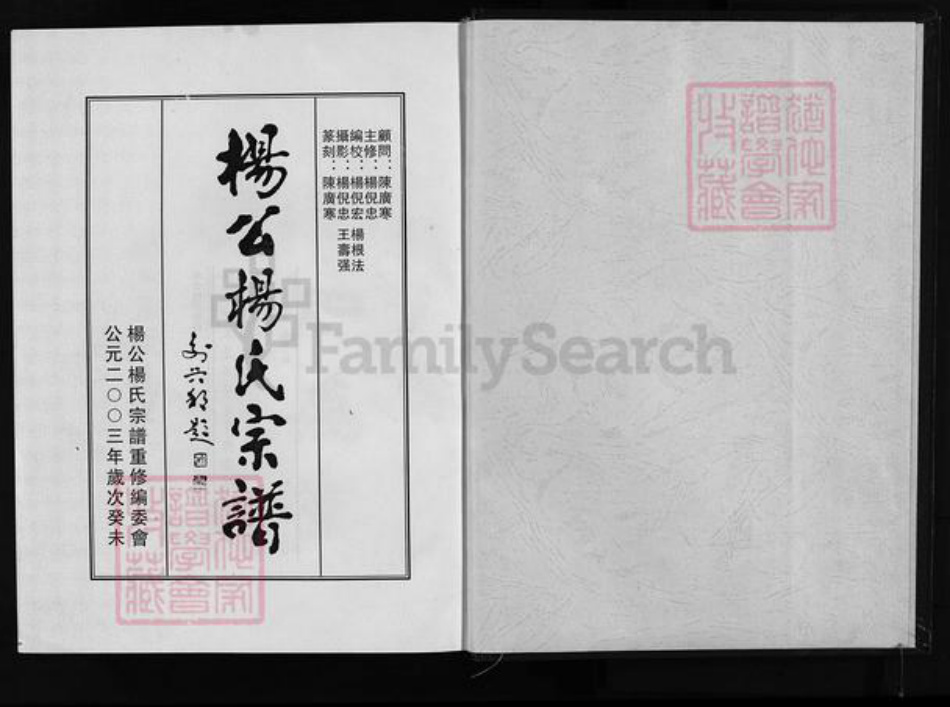 顧問：陳廣寒
主修：楊倪忠
編校：楊倪宏 楊根法
攝影：楊倪忠 王壽强
篆刻：陳廣寒
楊公楊氏宗譜
題
楊公楊氏宗譜重修編委會
公元二〇〇三年歲次癸未
譜學會
收藏
FamilySearch
譜學會
收藏